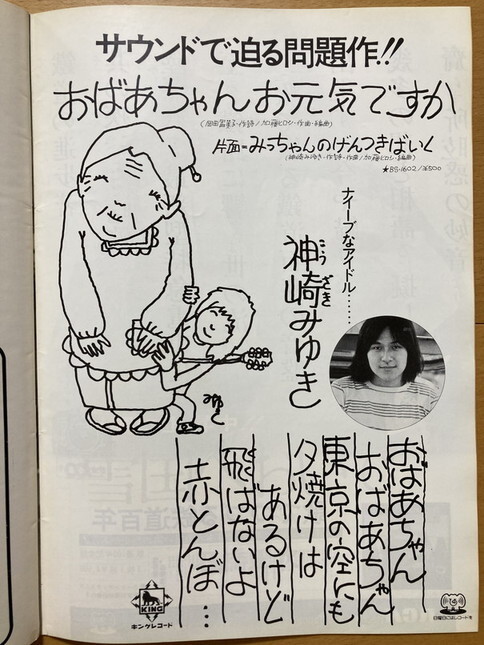 サウンドで迫る問題作!!
おばあちゃんお元気ですか
(岡田冨美子・作詩/加藤ヒロシ・作曲・編曲)
片面=みっちゃんのげんつきばいく
(神崎みゆき・作詩・作曲/加藤ヒロシ・編曲)
★BS-1602/¥500
ナイーブなアイドル……
神崎みゆき
こうざき
おばあちゃん
おばあちゃん
東京の空にも
夕焼けは
あるけど
飛ばないよ
赤とんぼ…
KING
キングレコード
日曜日にはレコードを